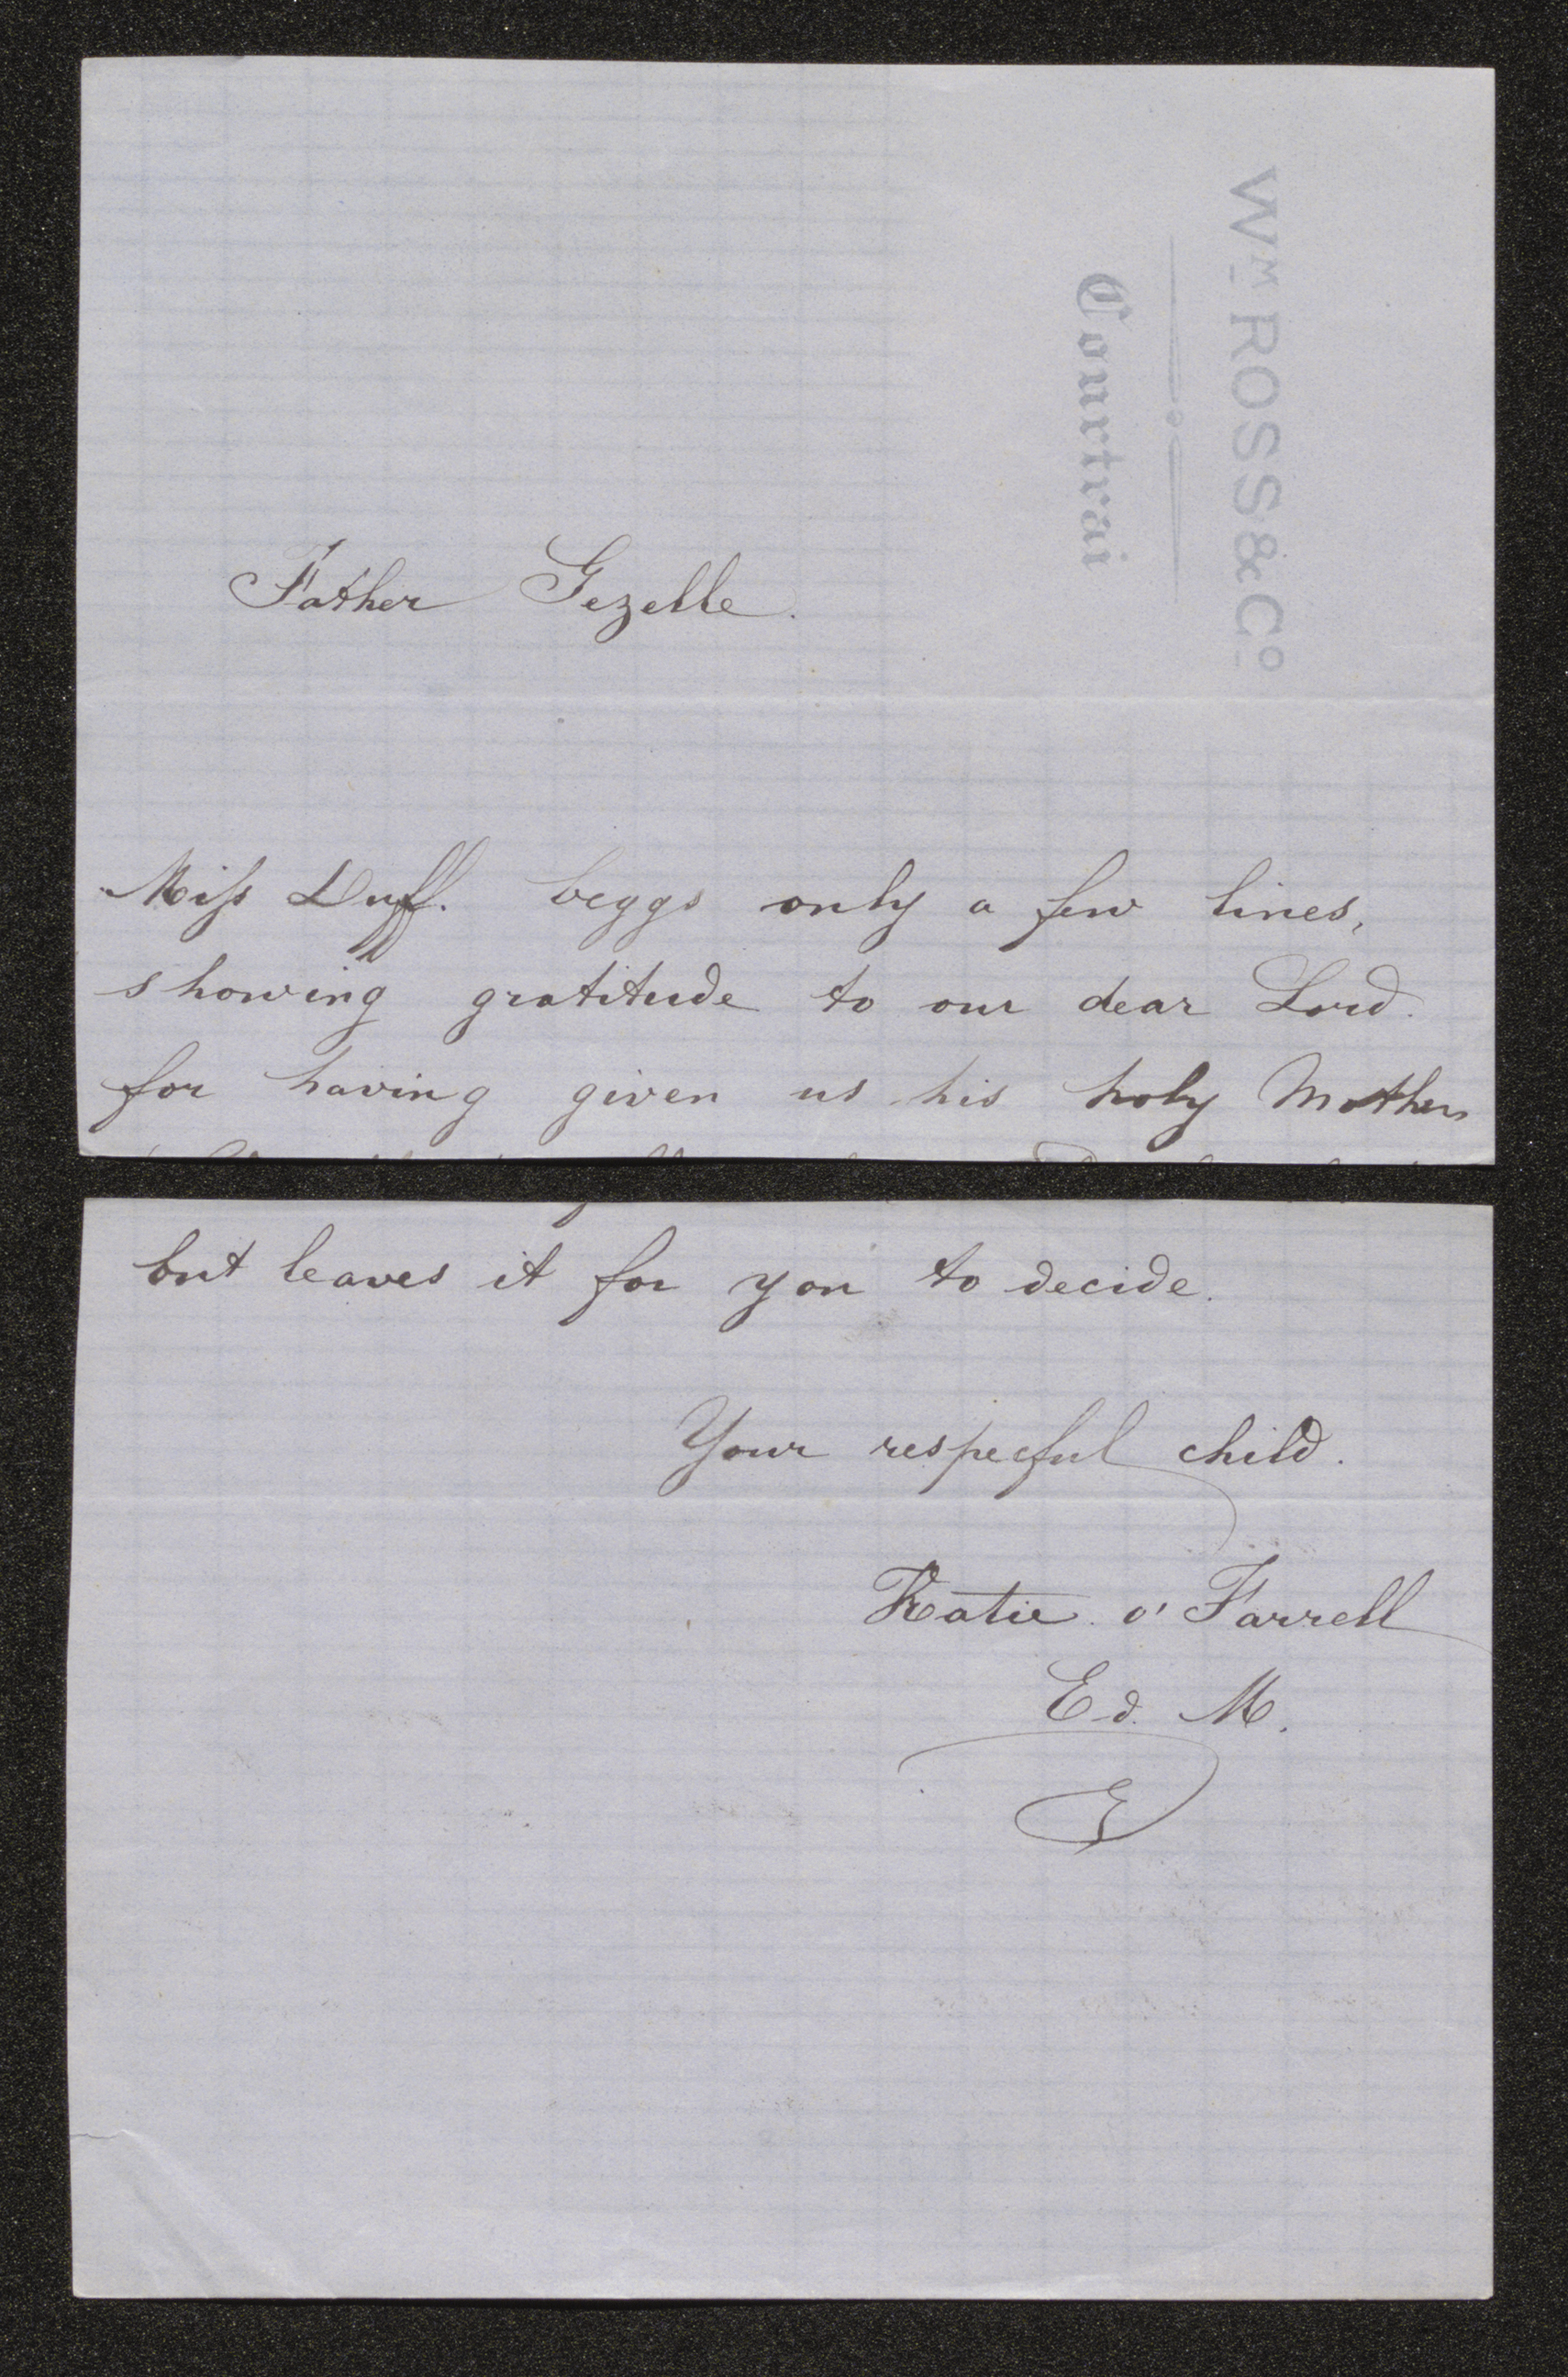 Wᴹ ROSS & Cº
Courtrai
Father Gezelle.
Miss Duff. beggs only a few lines,
showing gratitude to our dear Lord.
for having given us his holy Mother
but leaves it for you to decide.
Your respecful child.
Katie o' Farrell
Ed. M.